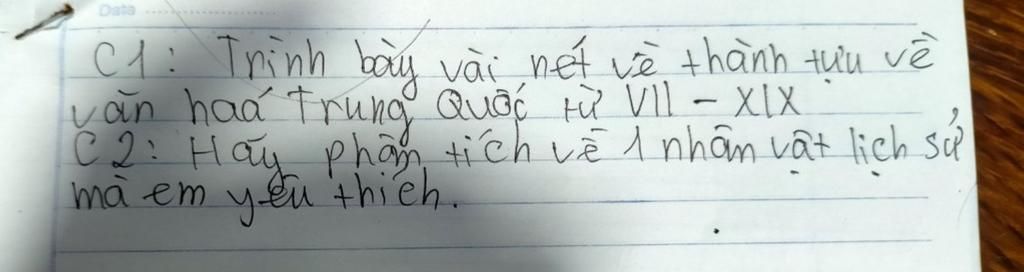 Date
C1: Trình bày vài nét về thành tựu về
văn hoá Trung Quốc từ VII - XIX
C2: Hãy phân tích về 1 nhân vật lịch sử
mà em yêu thích.